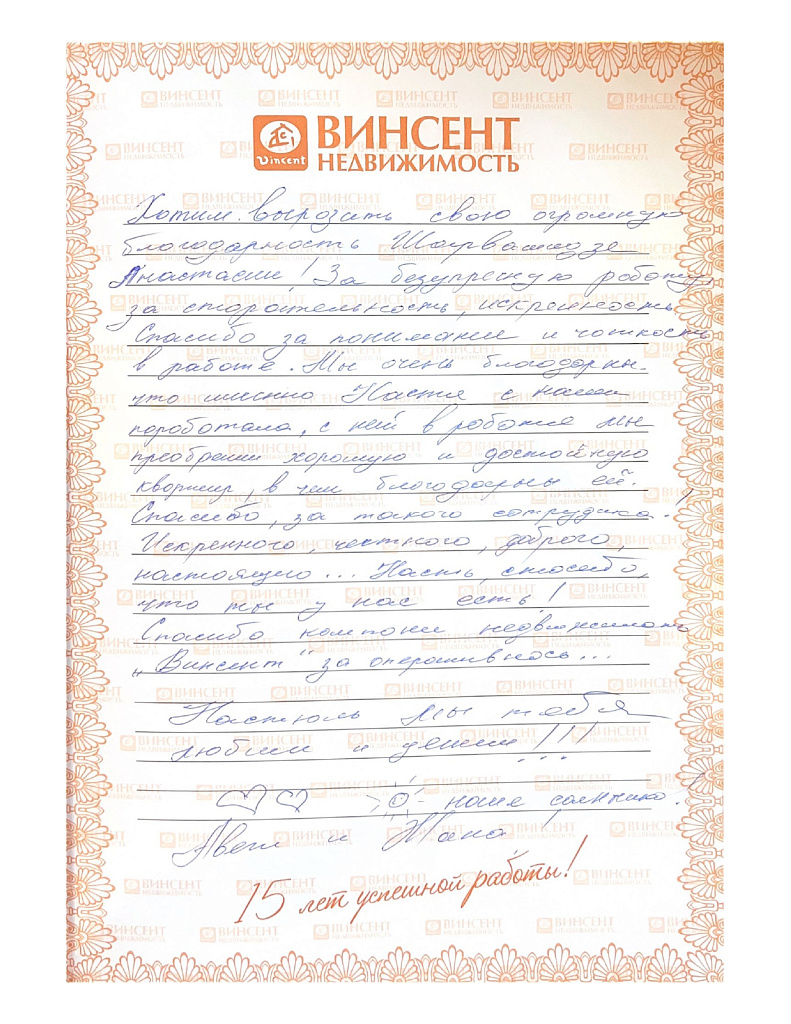 ВИНСЕНТ
НЕДВИЖИМОСТЬ
Vincent
Хотим вырозить свою огромную
благодарность Шаирвашидзе
Анастасии! За безупречную роботу,
за старательность, искренность
Спасибо за понимание и чоткость
в работе. Мы очень благодарны.
что именно Настя с нами
поработала, с ней в работе мы
преобрели хорошую и достойную
квартиру, в чем благодарны ей.
Спасибо, за такого сотрудника!
Искренного, честного, доброго,
настоящего... Насть, спасибо,
что ты у нас есть!
Спасибо компани недвижимость
„Винсент" за оперативнось...
Настюль мы тебя
любим и ценим!!!
наше солнышко.
и Жана
15 лет успешной работы!